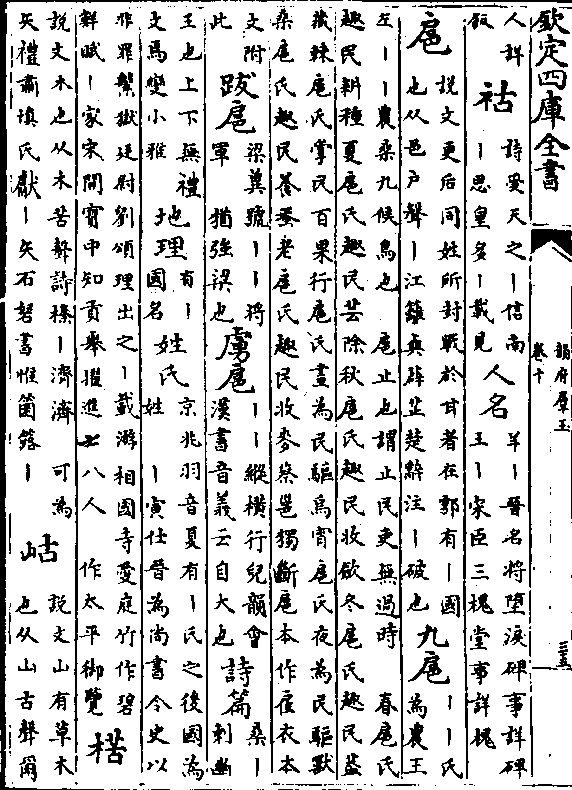 欽定四庫全書
韻府羣玉
卷十
三五
人詳
祜
詩受天之丨信南
丨思皇多丨載見
人名
羊丨晉名將墮淚碑事詳碑
王丨宋臣三槐堂事詳槐
扈
說文夏后同姓所封戰於甘者在鄠有丨國
也从邑戶聲丨江蘺與辟芷楚辭注丨破也
九扈
丨丨氏
為農王
左丨丨農桑九候鳥也 扈止也謂止民使無過時 春扈氏
趣民耕種夏扈氏趣民芸除秋扈氏趣民收斂冬扈氏趣民蓋
藏棘扈氏掌民百果行扈氏晝為民驅鳥宵扈氏夜為民驅獸
桑扈氏趣民養蠶老扈氏趣民收麥蔡邕獨斷扈本作雇衣本
文附
此
跋扈
梁冀號丨丨將
軍 猶強梁也
虜扈
丨丨縱橫行皃韻會
漢書音義云自大也
詩篇
桑丨
刺幽
王也上下無禮
文焉變小雅
地理
有丨
國名
姓氏
京兆羽音夏有丨氏之後國為
姓 丨寅仕晉為尚書令史以
非罪繫獄廷尉劉頌理出之丨載游相國寺愛庭竹作碧
鮮賦丨家宋開寳中知貢舉擢進士八人 作太平御覽
楛
說文木也从木苦聲詩榛丨濟濟 可為
矢禮肅慎氏獻丨矢石砮書惟箘簬丨
岵
說文山有草木
也从山古聲爾